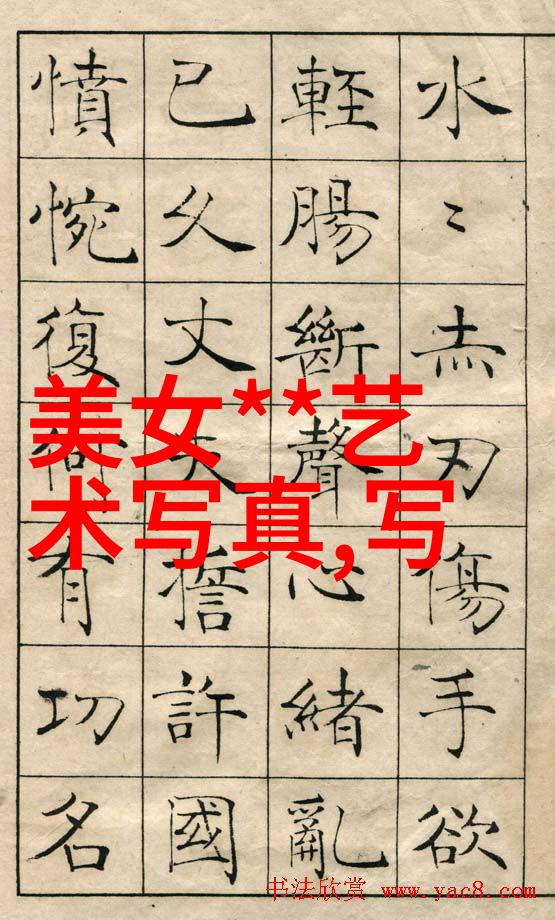 水〻赤刃傷手欲
輕腸斷聲心緒亂
已久丈夫誓許國
憤惋復何有功名
美女**艺
术写真,写
书法欣赏 www.yac8.com